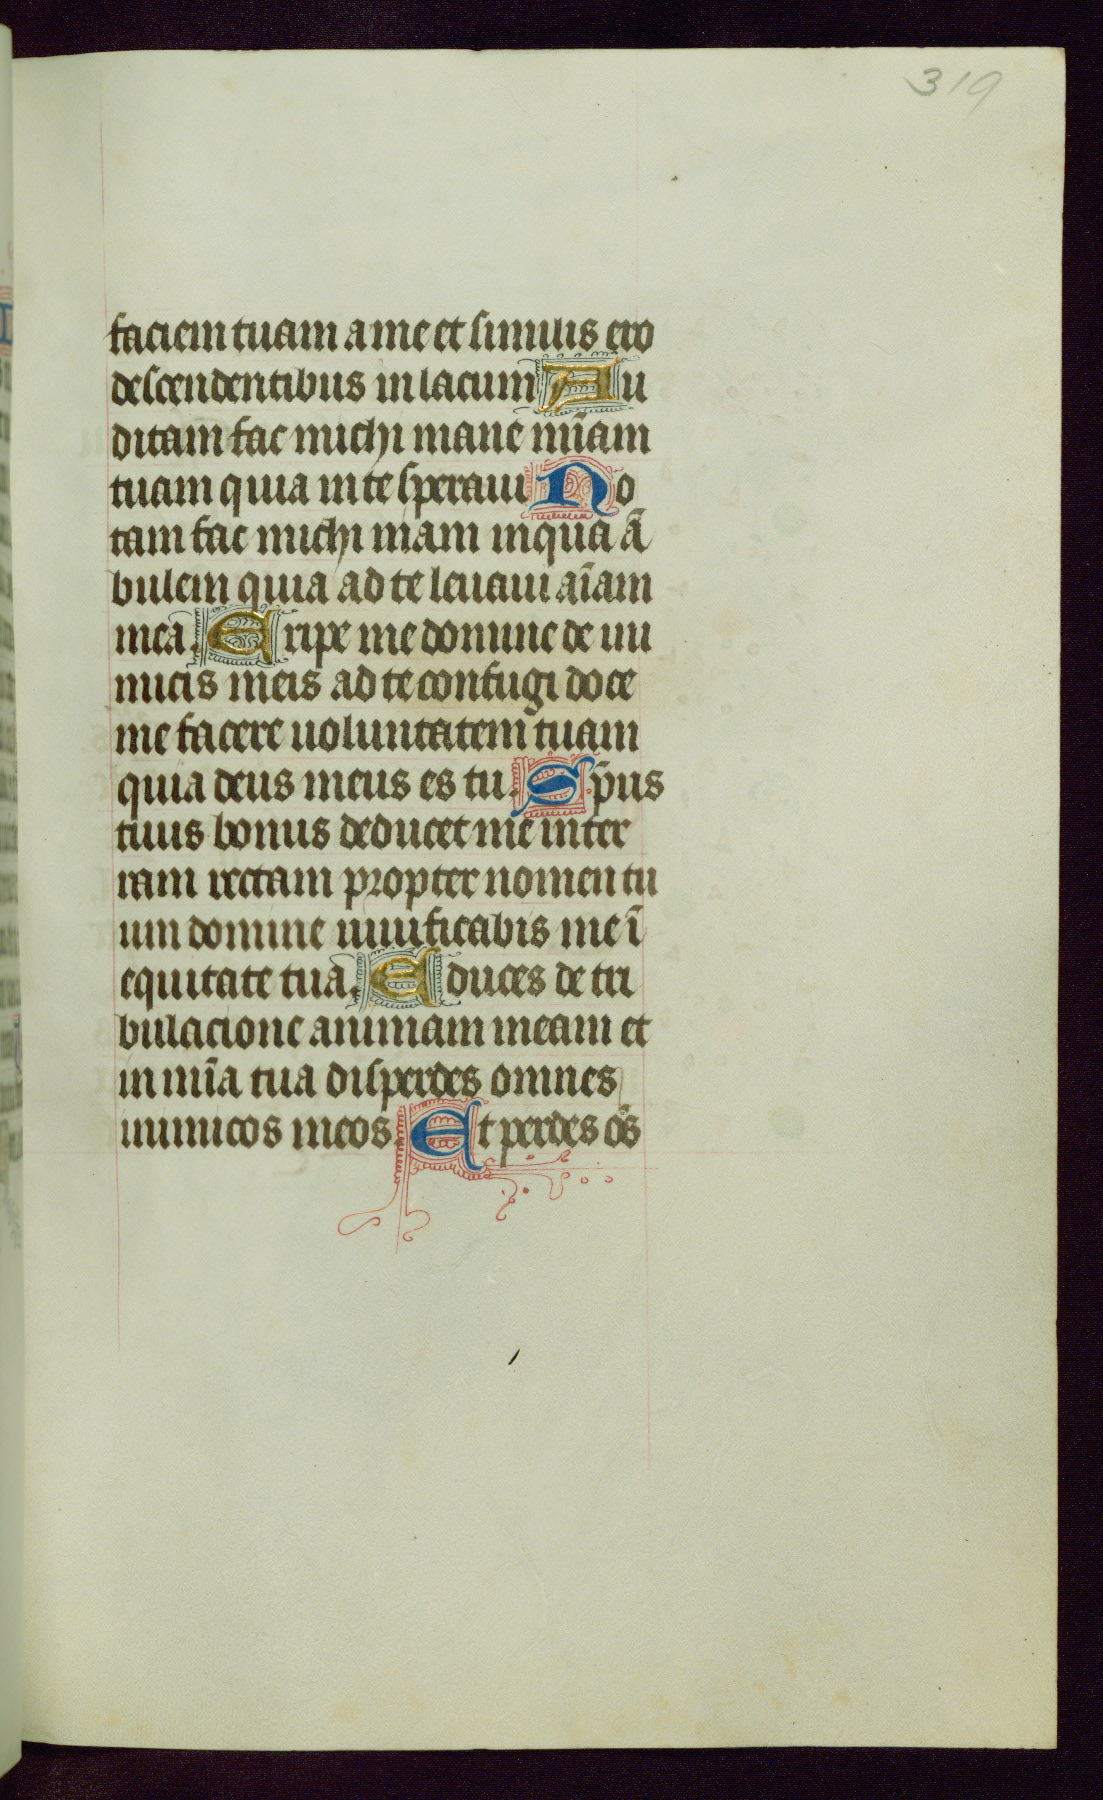 319
faciem tuam a me et similis ero
descendentibus in lacum Au
ditam fac michi mane mĩam
tuam quia in te speraui No
tam fac michi uiam in qua ã
bulem quia ad te leuaui aĩam
meã. Eripe me domine de ini
micis meis ad te confugi doce
me facere uoluntatem tuam
quia deus meus es tu. Sp̃us
tuus bonus deducet me in ter
ram rectam propter nomen tu
um domine uiuificabis me ĩ
equitate tuã. Educes de tri
bulacione animam meam et
in mĩa tua disperdes omnes
inimicos meos. Et perdes oẽs